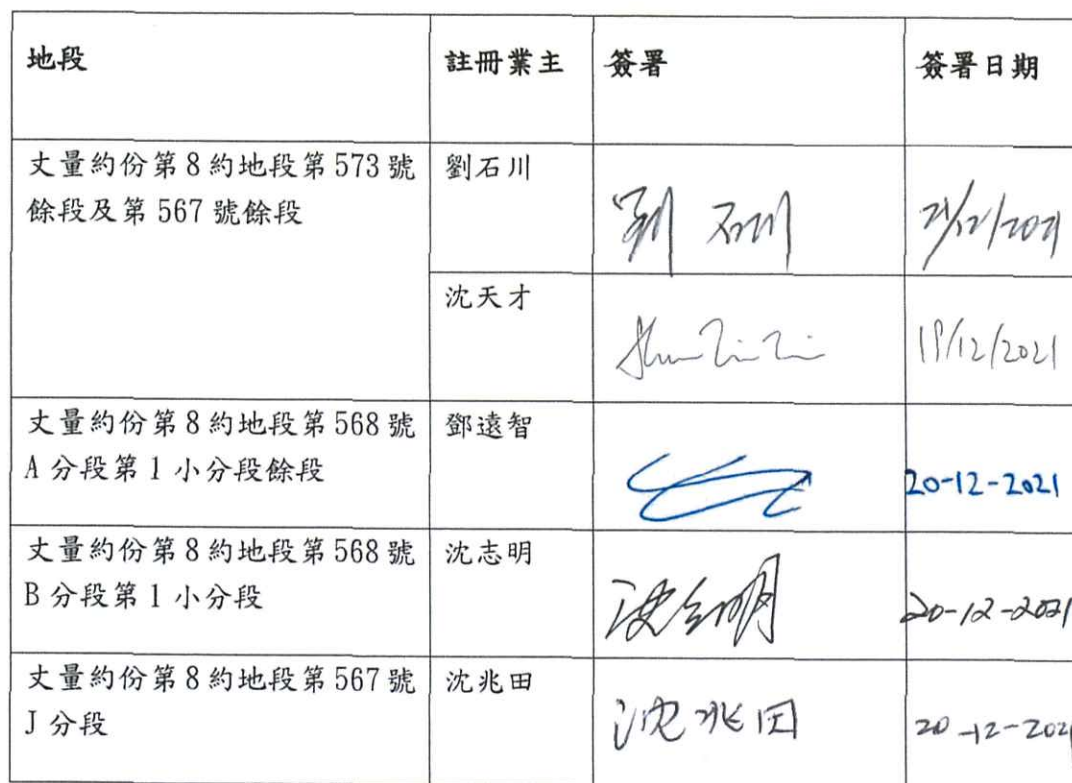 地段 註冊業主 簽署 簽署日期
丈量約份第8約地段第573號 劉石川
餘段及第567號餘段
劉 石川 21/12/2021
沈天才
19/12/2021
丈量約份第8約地段第568號 鄧遠智
A分段第1小分段餘段
20-12-2021
丈量約份第8約地段第568號 沈志明
B分段第1小分段
沈志明 20-12-2021
丈量約份第8約地段第567號 沈兆田
J分段
沈兆田 20-12-2021